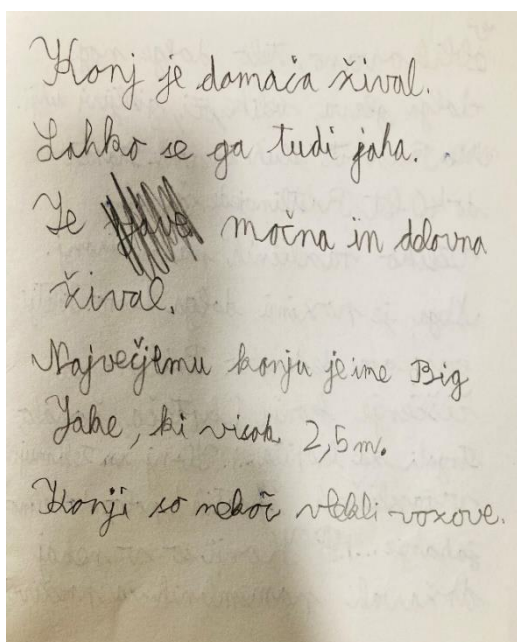 Konj je domača žival.
Lahko se ga tudi jaha.
Je močna in delovna
žival.
Največjemu konju je ime Big
Jake, ki visok 2,5m.
Konji so nekoč vlekli vozove.